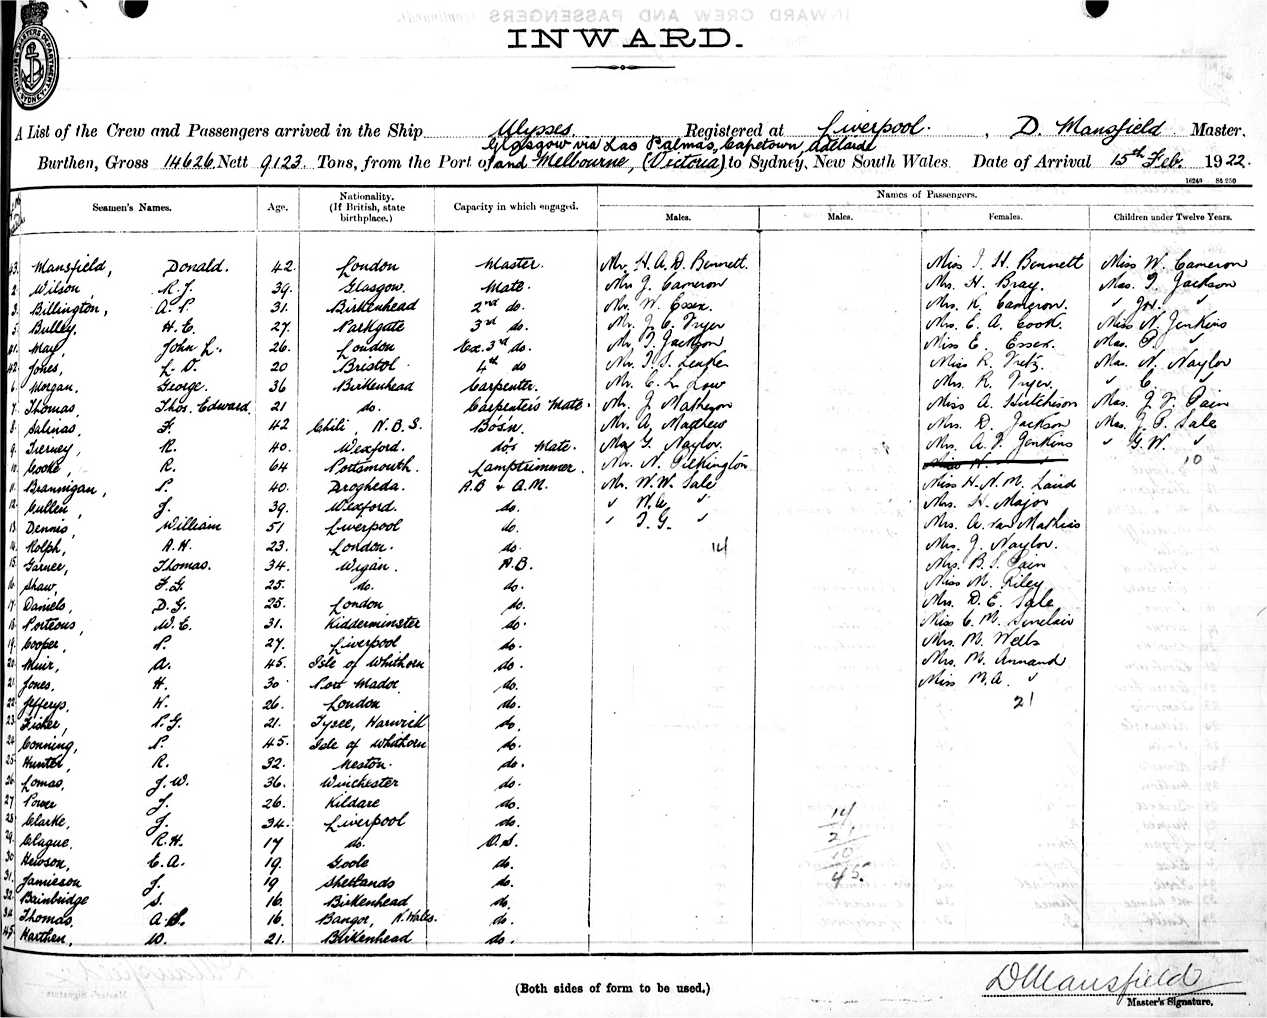 INWARD.
A List of the Crew and Passengers arrived in the Ship Ulysses. Registered at Liverpool. , D. Mansfield Master,
Glasgow via Las Palmas, Capetown, Adelaide
Burthen, Gross 14626 Nett 9123 Tons, from the Port of and Melbourne, (Victoria) to Sydney, New South Wales Date of Arrival 15th Feb. 1922.
Seamen's Names. Age. Nationality. (If British, state birthplace.) Capacity in which engaged. Names of Passengers.
Males. Males. Females. Children under Twelve Years.
Mansfield, Donald. 42. London Master. Mr. H. A. D. Bennett. Miss I. H. Bennett Miss W. Cameron
2. Wilson R. J. 39. Glasgow. Mate. Mr J. Cameron Mrs. H. Bray. Mas. I. Jackson
3. Billington, A. P. 31. Birkenhead 2nd do. Mr. W. Essex. Mrs. K. Cameron. " " 
5. Bulley, H. C. 27. Parkgate 3rd do. Mr. J. C. Fryer Mrs. E. A. Cook. Miss N. Jenkins
41. May, John L. 26. London Ex. 3rd do. Mr. I. Jackson Miss E. Essex. Mas. P. "
42. Jones, L. O. 20 Bristol. 4th do Mr. I. S. Miss R. Mas. N. Naylor
6. Morgan, George. 36 Birkenhead Carpenter. Mr. C. L. Low Mrs. R. Fryer. " C. "
7. Thomas, Thos. Edward. 21 do. Carpenter's Mate. Mr. J. Matheson Miss A. Hutchison Mas. J. F. Pain
8. Salinas, F. 42 Chili, N.B.S. Bos'n. Mr. A. Matthew Mrs. D. Jackson Mas. J. P. Sale
9. Tierney, R. 40. Wexford. do's Mate. G. Naylor. Mrs. A. J. Jenkins " G. W. "
10. Cooke, R. 64 Portsmouth. Lamptrimmer. Mr. N. Pilkington 10
11. Brannigan, P. 40. Drogheda. A.B & A.M. Mr. W. W. Sale Miss H. N. M. Laird
12. Cullen, J. 39. Wexford. do. " W. A. " Mrs. H. Major
13. Dennis, William 51 Liverpool do. " T. G. " Mrs. A. van Mathias
14. Rolph, A. H. 23. London. do. 14 Mrs. J. Naylor.
15. Garner, Thomas. 34. Wigan. A.B. Mrs. B. S. Pain
16. Shaw, F. G. 25. do. do. Miss M. Riley
17. Daniels, D. G. 25. London do. Mrs. D. E. Sale
18. Porteous, W. E. 31. Kidderminster do. Miss C. M. Sinclair
19. Cooper, P. 27. Liverpool do. Mrs. M. Wells
20. Muir, A. 45. Isle of Whithorn do. Mrs. M. Annand
21. Jones, H. 30 Port Madoc. do. Miss M. A. "
22. Jefferys, W. 26. London do. 21
23. Fisher, P. G. 21. Tysee, Harwick do.
24. Conning, P. 45. Isle of Whithorn do.
25. Hunter, R. 32. Neston. do.
26. Lomas, J. W. 36. Winchester do.
27 Power J. 26. Kildare do. 14
28. Clarke, J. 34. Liverpool do. 21
29. Clague, R. H. 17 do. O.S. 10
30. Hewson, C. A. 19. Goole do. 45.
31. Jamieson J. 19 Shetlands do.
32. Bainbridge S. 16. Birkenhead do.
34. Thomas, A. 16. Bangor, N. Wales. do.
45. Harthen, W. 21. Birkenhead do.
(Both sides of form to be used.) D Mansfield
Master's Signature.